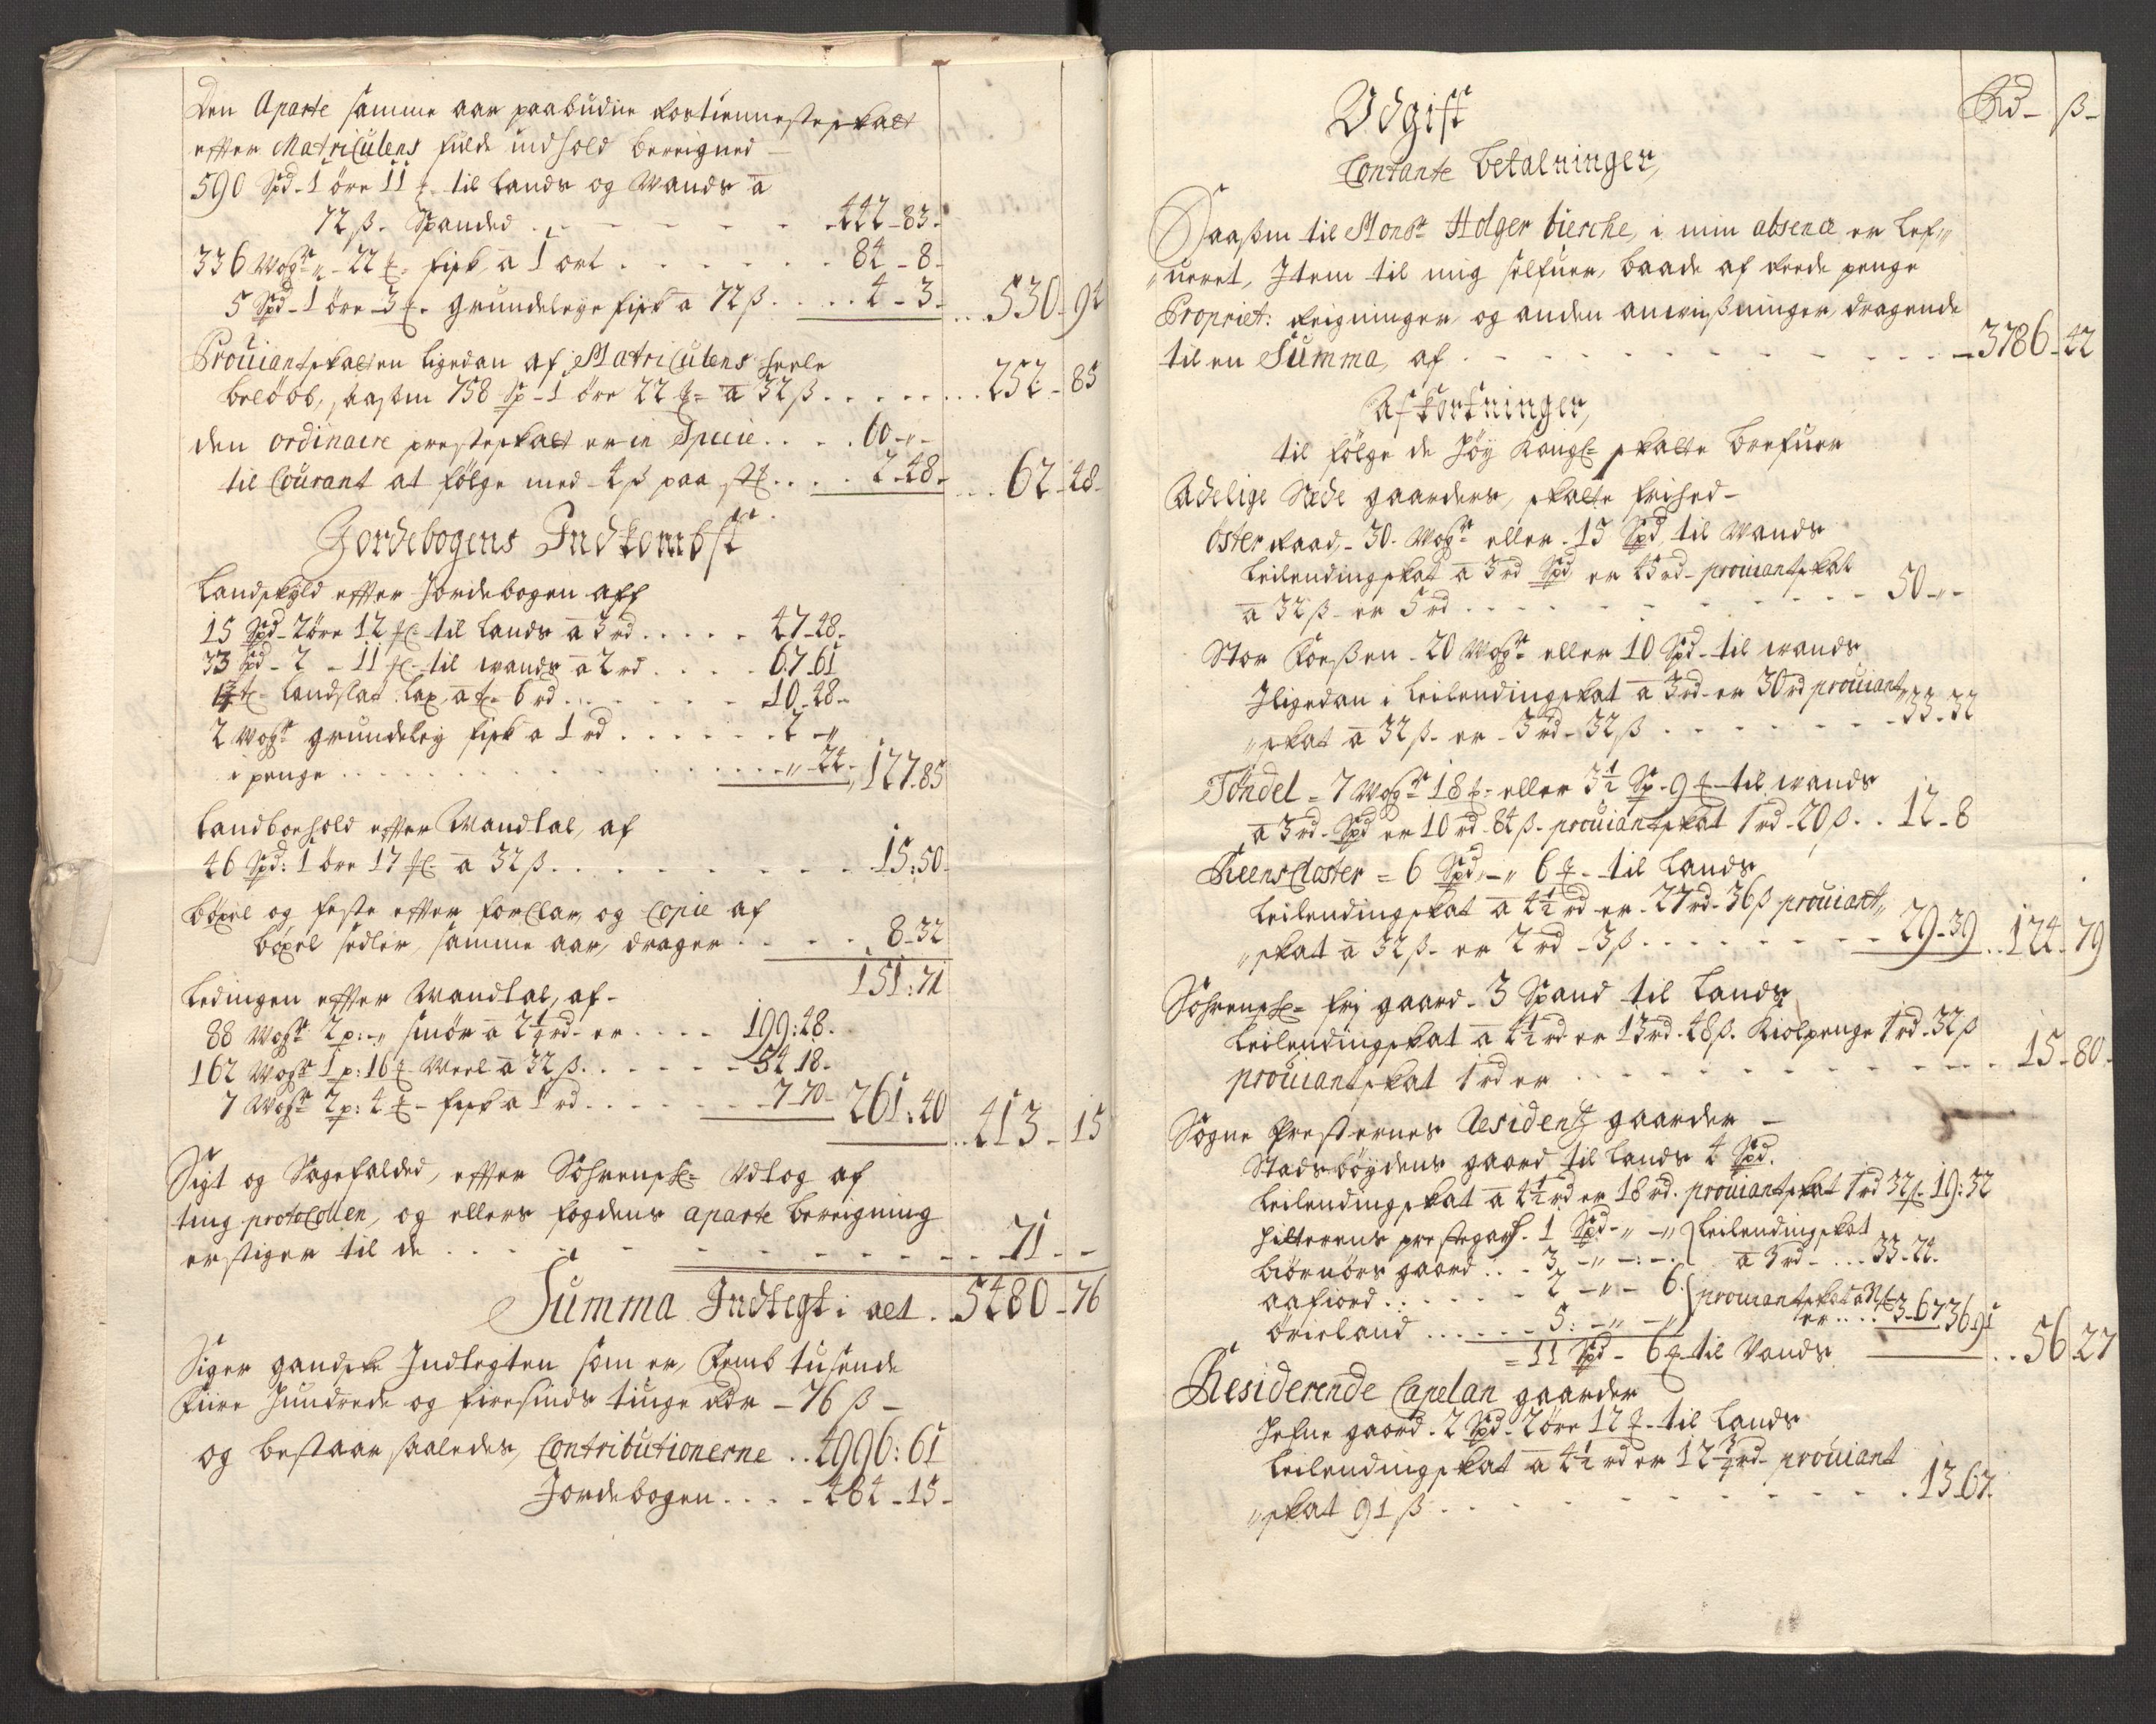 Den Aparte samme aar paabudne fortienneste skatt
effter Matriculens fulde indhold bereigned
590 Spd - 1 öre 11 ℔ - til Lands og Vands a
72 ß. Spanded . - - - - - 442 - 83 -
336 Wogr „ - 22 ℔ - fisk a 1 ort . . . . . . 84 - 8 -
5 Spd - 1 öre - 3 ℔ - grundeleye fisk a 72 ß . . . . . 4 - 3 - . . . 530 - 94
Proviantskatten ligedan af Matriculens heele
beløb, saasom 758 Sp - 1 öre 22 ℔ - a 32 ß . . . . . . . . 252 - 85
den ordinaire presteskatt er in Specie . . . . 60 - „ -
til Courant at følge med 4 ß paa st . . . . 2 - 48 - . . . 62 - 48 -
Jordebogens Indkombst
Landskyld effter Jordebogen aff
15 Spd - 2 öre 12 ℔ - til Lands a 3 rd . . . . . 47 - 48 -
33 Spd - 2 - 11 ℔ - til wands a 2 rd . . . . 67 - 61
1¾ ℔ - Landslat Lax, a ℔ - 6 rd . . . . . . - 10 - 48 -
2 Wogr grundeley fisk a 1 rd . . . . . . 2 - „
i penge . . . . . . . . . . . . - „ 24 - , 127 . 85
Landboehold effter Mandtal, af
46 Spd: 1 öre 17 ℔ a 32 ß . . . . . . . . . 15 : 50 -
bøxel og feste effter forClar, og Copie af
bøxel sedler, samme aar, drager . . . . . 8 - 32
151 : 71
Ledingen effter Mandtal, af -
88 Wogr 2 p: - „ smör a 2¼ rd - er . . . . 199 : 48 -
162 Wogr 1 p: 16 ℔ Meel a 32 ß . . . . . - 54 18 -
7 Wogr 2 p: 4 ℔ - fisk a 1 rd . . . . . . - 7 - 70 - 261 : 40 . . 413 - 15
Sigt og Sagefalded, effter Sohrenskr Udtog af
ting protoCollen, og ellers fogdens aparte bereigning
erstiger til de . . . . - - - - - - . . . 71 - -
Summa Indtegt i alt . . 5480 - 76
Siger gandske Indtegten som er, Femb tusende
Fiire Hundrede og firesinds tiuge Rdr - 76 ß -
og bestaar saaledes, Contributionerne . . 4996 : 61
Jordebogen . . . . 484 - 15 -
Udgift
Rd - ß -
Contante betalninger,
Saasom til Monsr Holger bierche, i min absence er Lef„
„ueret, Item til mig selfuer, baade af reede penge
Propriet: reigninger og anden anvissninger, dragende
til en Summa, af . . - - - - - - - 3786 - 42
Afkortninger,
til følge de høy Kongl= skatte brefuer
Adelige Sæde gaarders, skatte frihed -
Öster Raad, - 30 - Wogr eller - 15 Spd. til Wands
Leilendingskat a 3 rd Spd er 45 rd - proviantskat
a 32 ß - er 5 rd . . . - - - - - - 50 - „ -
Stor Foessen - 20 Wogr eller 10 Spd - til wands
Iligedan i Leilendingskat a 3 rd - er 30 rd proviant„
„skat a 32 ß - er - 3 rd - 32 ß . . . . . . . . 33 - 32
Töndel = 7 Wogr 18 ℔ - eller 3½ Sp - 9 ℔ - til wands
a 3 rd - Spd er 10 rd - 84 ß - proviantskat 1 rd - 20 ß . . 12 - 8
ReensCloster = 6 Spd „ - „ 6 ℔ - til Lands
Leilendingskat a 4½ rd - er - 27 rd - 36 ß proviant„
„skat a 32 ß - er 2 rd - 3 ß . . . . . . . . 29 - 39 . . 124 - 79
Sohrenskr= frj gaard - 3 Spand til Lands
Leilendingskat a 4½ rd er 13 rd - 48 ß. Kiolpenge 1 rd - 32 ß
proviantskat 1 rd er . . . . . . . . . 15 - 80 -
Sogne Presternes Residentz gaarder -
Stadsbøydens gaard til Lands 4 Spd.
Leilendingskat a 4½ rd er 18 rd. proviantskat 1 rd 32 ß. 19 : 32
Hitterens prestegard . 1 Spd - „ - „ Leilendingskat
biörnörs gaard . . - 3 - „ - : - . a 3 rd - . . . 33 - 24 -
aafiord . . . . . . . 2 - „ - 6 . proviantskat a 32 ß
örieland . . . . . . 5 : - „ - „ er . . . . 3 - 67 36 . 91
= 11 Spd - 6 ℔ - til Vands . . 56 . 27
Residerende Capelan gaarder
Hefne gaard - 2 Spd - 2 öre 12 ℔ - til Lands
Leilendingskat a 4½ rd er 12¾ rd - proviant
„skat 91 ß . . . . . . . . . . . 13 - 67 .